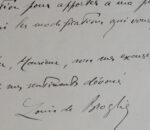 pour apporter à ma p
les modifications que vous
Monsieur, avec mes excuses
mes sentiments dévoués
Louis de Broglie